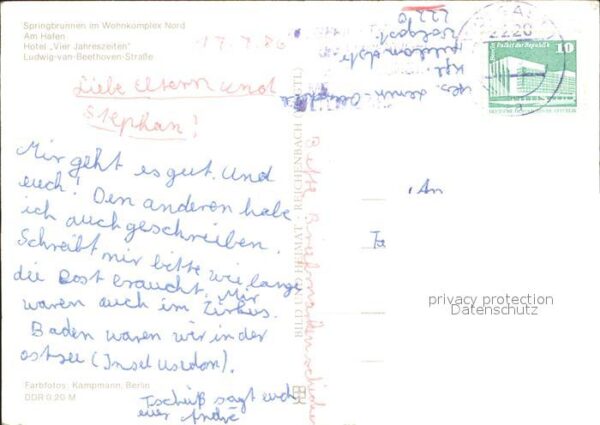 Springbrunnen im Wohnkomplex Nord
Am Hafen
Hotel „Vier Jahreszeiten"
Ludwig-van-Beethoven-Straße
17.7.86
Liebe Eltern und
Stephan!
Mir geht es gut. Und
euch! Den anderen habe
ich auch geschreiben.
Schreibt mir bitte wie lange
die Post braucht. Mir
waren auch im Zirkus.
Baden waren wir in der
ostsee (Insel usedom).
Tschüß sagt euch
euer André
Farbfotos: Kampmann, Berlin
DDR 0,20 M
BILD UND HEIMAT · REICHENBACH
Bitte Briefmarken
2220
Palast der Republik
10
An
privacy protection
Datenschutz